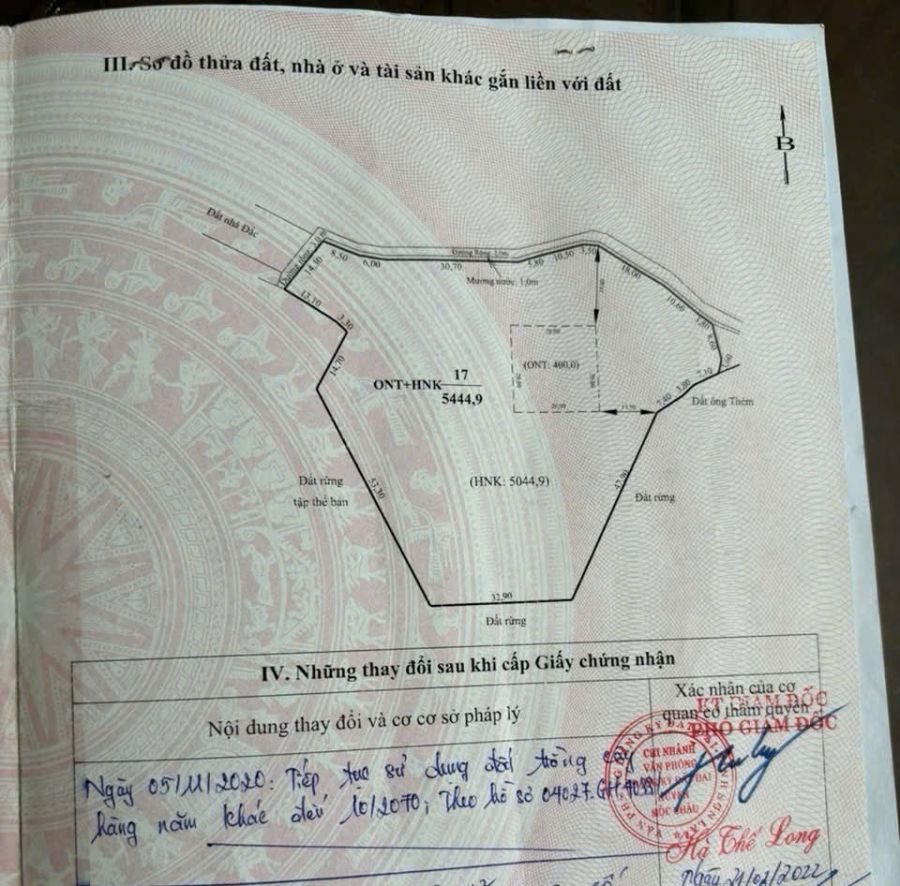 III. Sơ đồ thửa đất, nhà ở và tài sản khác gắn liền với đất
B
Đất nhà Đắc
Đường rộng 3,0 m
14,30
8,50
6,00
Đường Rộng 3,0m
30,70
4,80
10,30
3,50
Mương nước: 1,0m
18,00
10,60
3,80
8,60
13,10
3,30
14,70
20,00
(ONT: 400,0)
20,00
20,00
20,00
ONT+HNK 17
5444,9
7,10
3,80
7,40
Đất ông Thém
Đất rừng
tập thể bản
53,30
(HNK: 5044,9)
47,90
Đất rừng
32,90
Đất rừng
IV. Những thay đổi sau khi cấp Giấy chứng nhận
Nội dung thay đổi và cơ cơ sở pháp lý
Xác nhận của cơ
quan có thẩm quyền
KT GIÁM ĐỐC
PHÓ GIÁM ĐỐC
CHI NHÁNH
VĂN PHÒNG
MỘC CHÂU
Ngày 05/11/2020: Tiếp tục sử dụng đất trồng cây
hàng năm khác đến 10/2070; Theo hồ sơ 04027.GH.
Hà Thế Long
Ngày 21/02/2022